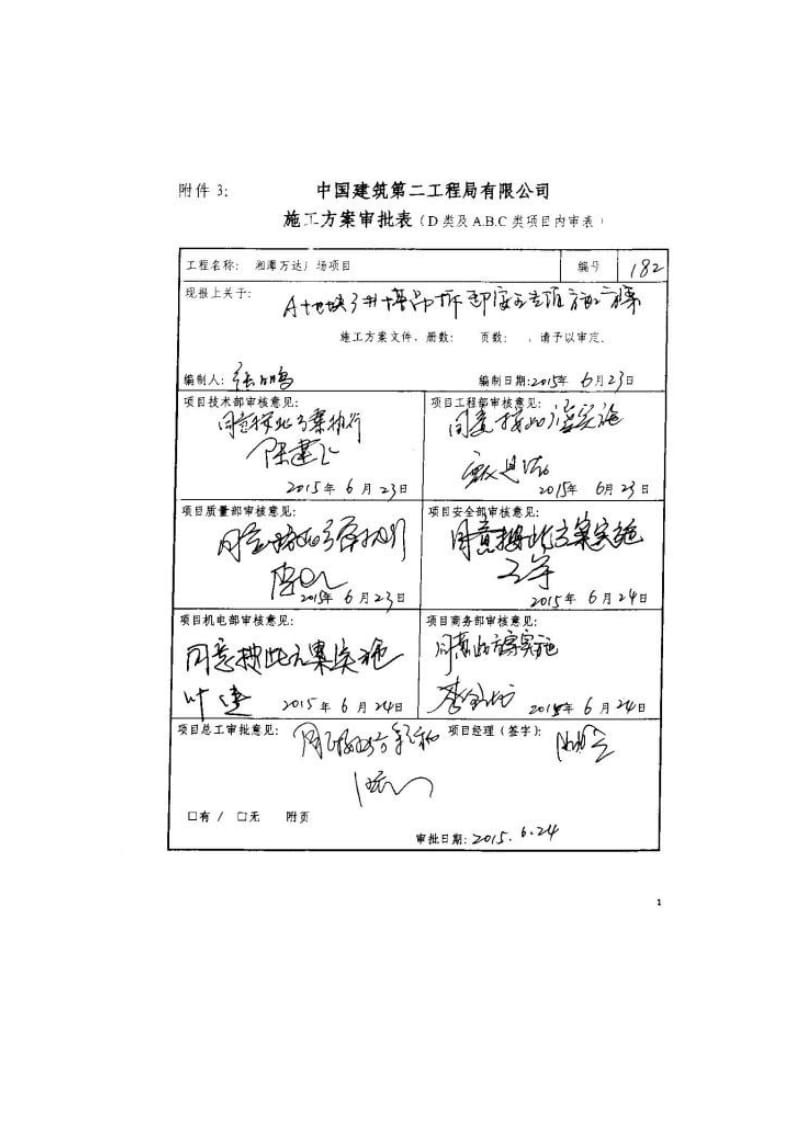 附件 3:
中国建筑第二工程局有限公司
施工方案审批表（D 类及 A.B.C 类项目内审表）
工程名称: 湘潭万达广场项目 编号 182
现报上关于: A地块3#塔吊拆卸
施工方案文件, 册数: 页数: , 请予以审定.
编制人: 张鹏 编制日期: 2015年 6月23日
项目技术部审核意见:
同意按此方案执行
陈建
2015年 6 月 23日
项目工程部审核意见:
同意按此方案实施
2015年 6月 23日
项目质量部审核意见:
同意按此方案执行
2015年 6 月 23日
项目安全部审核意见:
同意按此方案实施
2015年 6 月 24日
项目机电部审核意见:
同意按此方案实施
叶建
2015年 6 月 24日
项目商务部审核意见:
同意此方案实施
李
2015年 6 月 24日
项目总工审批意见:
项目经理（签字）:
□有 / □无 附页
审批日期: 2015.6.24
1